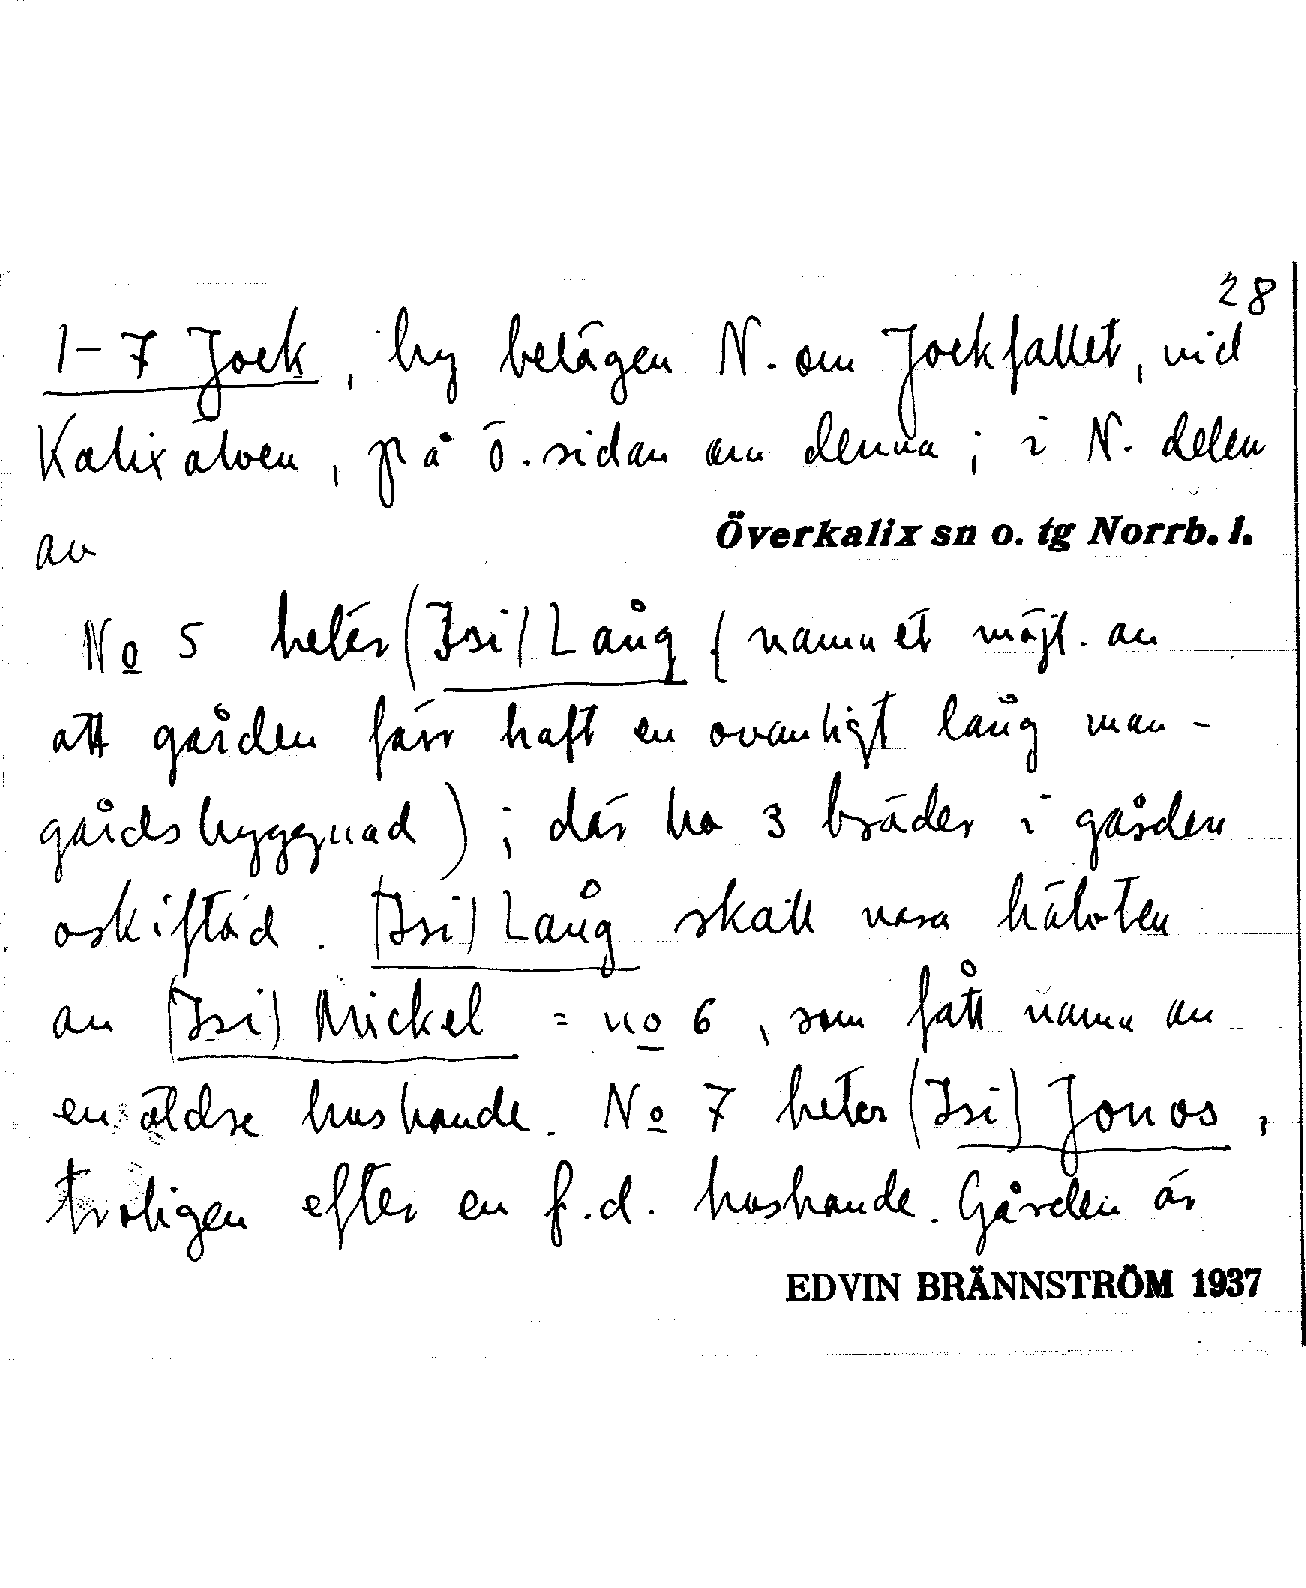 28
1-7 Jock, by belägen N. om Jockfallet, vid
Kalixälven, på ö. sidan om denna; i N. delen
av
Överkalix sn o. tg Norrb. l.
No 5 heter (Isi) Lång (namnet möjl. av
att gården förr haft en ovanligt lång man-
gårdsbyggnad); där ha 3 bröder i gården
oskiftad. (Isi) Lång skall vara hälvten
av (Isi) Mickel = no 6, som fått namn av
en äldre husbonde. No 7 heter (Isi) Jonas,
troligen efter en f.d. husbonde. Gården är
EDVIN BRÄNNSTRÖM 1937